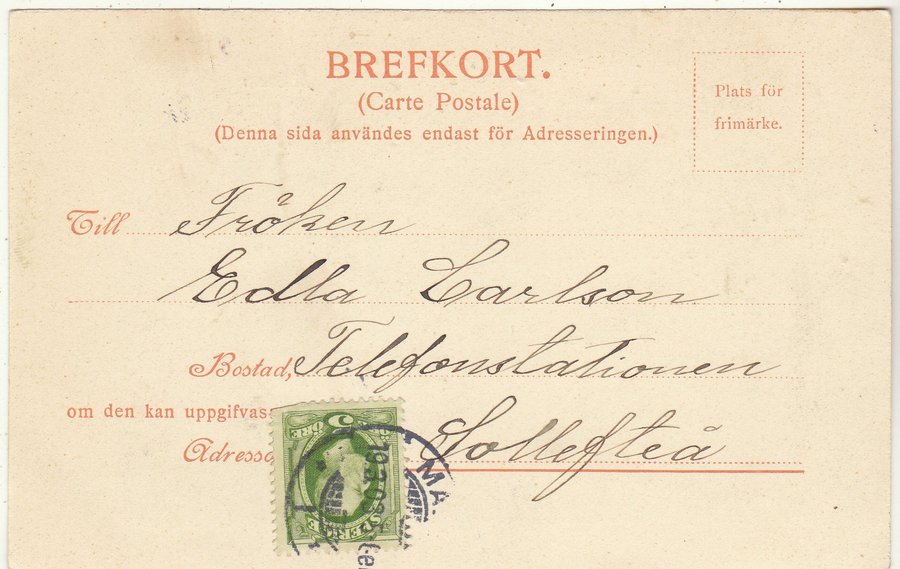 BREFKORT.
(Carte Postale)
(Denna sida användes endast för Adresseringen.)
Plats för
frimärke.
Till Fröken
Edla Carlson
Bostad, Telefonstationen
om den kan uppgifvas
Sollefteå
5
ÖRE
SVERIGE
MA